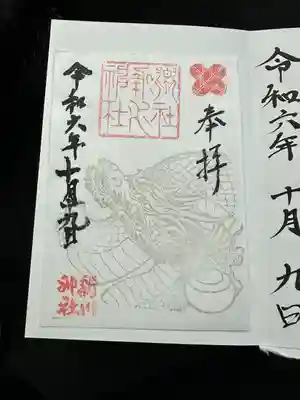 令和六年 十月 九日
奉拝
令和六年 十月九日
新川
神社